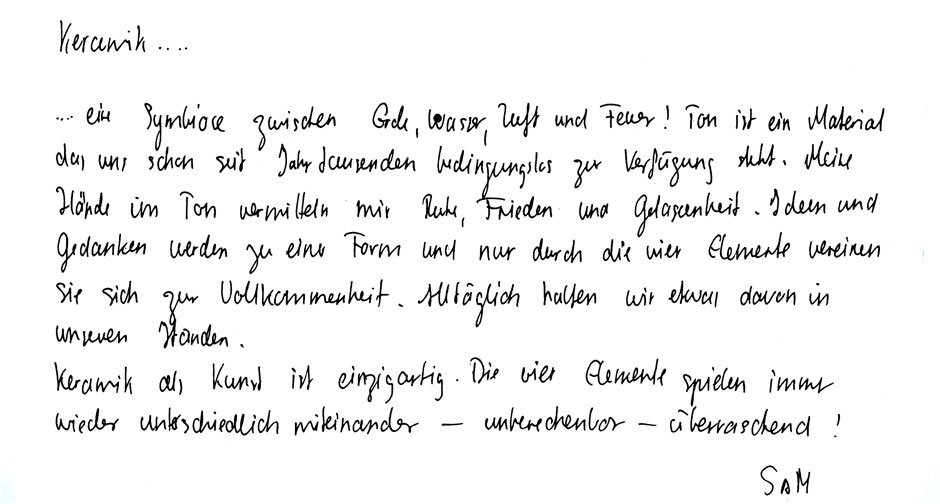 Keramik ....
... eine Symbiose zwischen Erde, Wasser, Luft und Feuer! Ton ist ein Material
das uns schon seit Jahrtausenden bedingungslos zur Verfügung steht. Meine
Hände im Ton vermitteln mir Ruhe, Frieden und Gelassenheit. Ideen und
Gedanken werden zu einer Form und nur durch die vier Elemente vereinen
sie sich zur Vollkommenheit. Alltäglich halten wir etwas davon in
unseren Händen.
Keramik als Kunst ist einzigartig. Die vier Elemente spielen immer
wieder unterschiedlich miteinander – unberechenbar – überraschend!
SAM